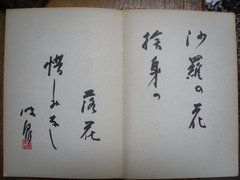 沙羅の花
捨身の
落花
惜しみなし